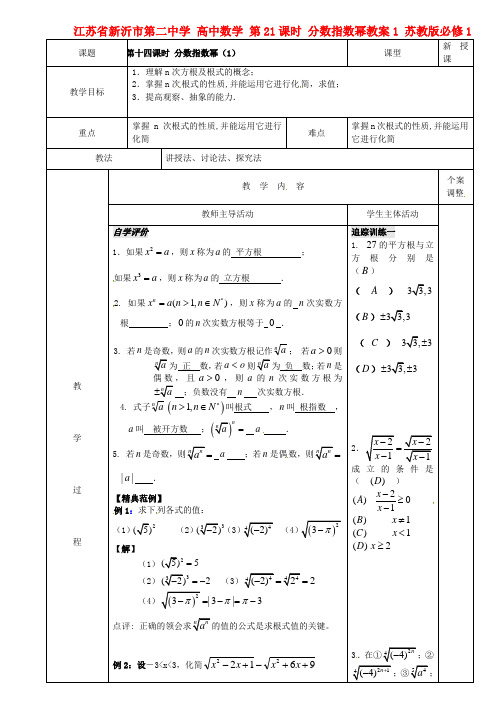 江苏省新沂市第二中学 高中数学 第21课时 分数指数幂教案1 苏教版必修1
课题
第十四课时 分数指数幂（1）
课型
新授课
教学目标
1．理解n次方根及根式的概念；
2．掌握n次根式的性质,并能运用它进行化简，求值；
3．提高观察、抽象的能力．
重点
掌握n次根式的性质,并能运用它进行化简
难点
掌握n次根式的性质,并能运用它进行化简
教法
讲授法、讨论法、探究法
教
学
过
程
教 学 内 容
个案调整
教师主导活动
学生主体活动
自学评价
1．如果$x^2=a$，则$x$称为$a$的 平方根 ；
如果$x^3=a$，则$x$称为$a$的 立方根 ．
2. 如果$x^n=a(n>1,n\in N^*)$，则$x$称为$a$的 n 次实数方根 ；0的$n$次实数方根等于 0 ．
3. 若$n$是奇数，则$a$的$n$次实数方根记作$\sqrt[n]{a}$； 若$a>0$则$\sqrt[n]{a}$为 正 数,若$a<o$则$\sqrt[n]{a}$为 负 数；若$n$是偶数，且$a>0$，则$a$的$n$次实数方根为$\pm\sqrt[n]{a}$ ；负数没有 n 次实数方根．
4. 式子$\sqrt[n]{a}$ $(n>1,n\in N^*)$叫根式 ，$n$叫 根指数 ，$a$叫 被开方数 ；$(\sqrt[n]{a})^n=$ $a$ ．
5. 若$n$是奇数，则$\sqrt[n]{a^n}=$ $a$ ；若$n$是偶数，则$\sqrt[n]{a^n}=$ $|a|$ ．
【精典范例】
例1：求下列各式的值：
（1）$(\sqrt{5})^2$ （2）$(\sqrt[3]{-2})^3$（3）$\sqrt[4]{(-2)^4}$ （4）$\sqrt{(3-\pi)^2}$
【解】
（1）$(\sqrt{5})^2=5$
（2）$(\sqrt[3]{-2})^3=-2$ （3）$\sqrt[4]{(-2)^4}=\sqrt[4]{2^4}=2$
（4）$\sqrt{(3-\pi)^2}=|3-\pi|=\pi-3$
点评: 正确的领会求$\sqrt[n]{a^n}$的值的公式是求根式值的关键。
例2：设－3<x<3，化简$\sqrt{x^2-2x+1}-\sqrt{x^2+6x+9}$
追踪训练一
1. 27的平方根与立方根分别是（B）
（A） $3\sqrt{3},3$
（B）$\pm3\sqrt{3},3$
（C） $3\sqrt{3},\pm3$
（D）$\pm3\sqrt{3},\pm3$
2．$\sqrt{\frac{x-2}{x-1}}=\frac{\sqrt{x-2}}{\sqrt{x-1}}$成立的条件是（ (D) ）
(A) $\frac{x-2}{x-1}\geq 0$ .
(B) $x\neq 1$
(C) $x<1$
(D) $x\geq 2$
3.. 在①$\sqrt[4]{(-4)^{2n}}$；②$\sqrt[4]{(-4)^{2n+1}}$；③$\sqrt[5]{a^4}$；